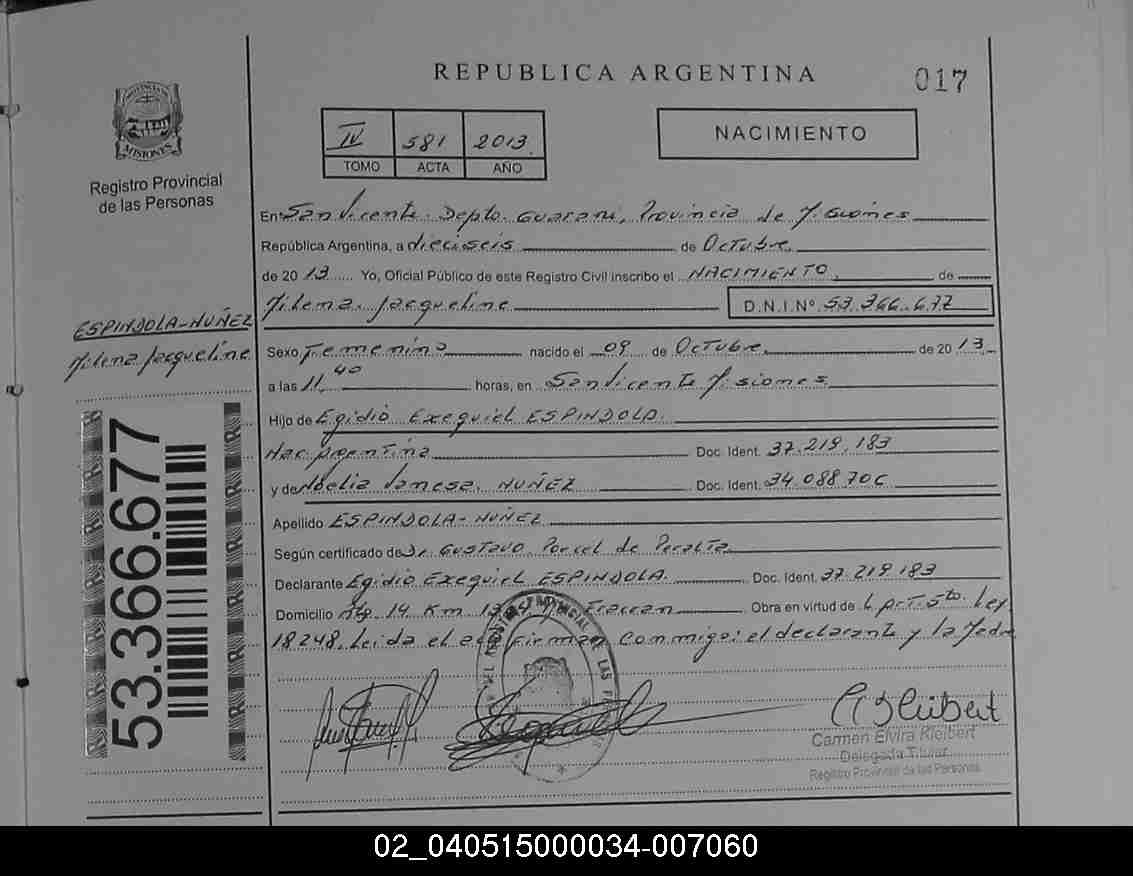 REPUBLICA ARGENTINA
017
PROVINCIA DE MISIONES
Registro Provincial
de las Personas
IV 581 2013
TOMO ACTA AÑO
NACIMIENTO
En San Vicente. Depto. Guarani, Provincia de Misiones
República Argentina, a dieciseis de Octubre
de 2013 Yo, Oficial Público de este Registro Civil inscribo el NACIMIENTO de
Milena Jacqueline D.N.I.Nº 53.366.677
ESPINDOLA-NUÑEZ
Milena Jacqueline
Sexo Femenino nacido el 09 de Octubre de 2013
a las 11,40 horas, en San Vicente Misiones
Hijo de Egidio Exequiel ESPINDOLA
Nac. Argentina Doc. Ident. 37.219.183
y de Noelia Vanesa NUÑEZ Doc. Ident. 34.088.706
Apellido ESPINDOLA-NUÑEZ
Según certificado de Dr. Gustavo Porcel de Peralta
Declarante Egidio Exequiel ESPINDOLA. Doc. Ident. 37.219.183
Domicilio 14 Km Fracran Obra en virtud de L. Art. 5to. Ley
18248. Leida el firman conmigo: el declarante y la Madre
53.366.677
Carmen Elvira Kleibert
Delegada Titular
Registro Provincial de las Personas
02_040515000034-007060